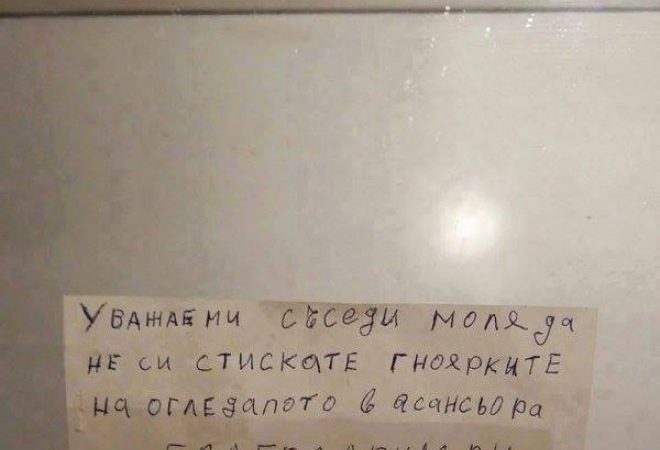 Уважаеми съседи моля да
не си стискате гноярките
на огледалото в асансьора